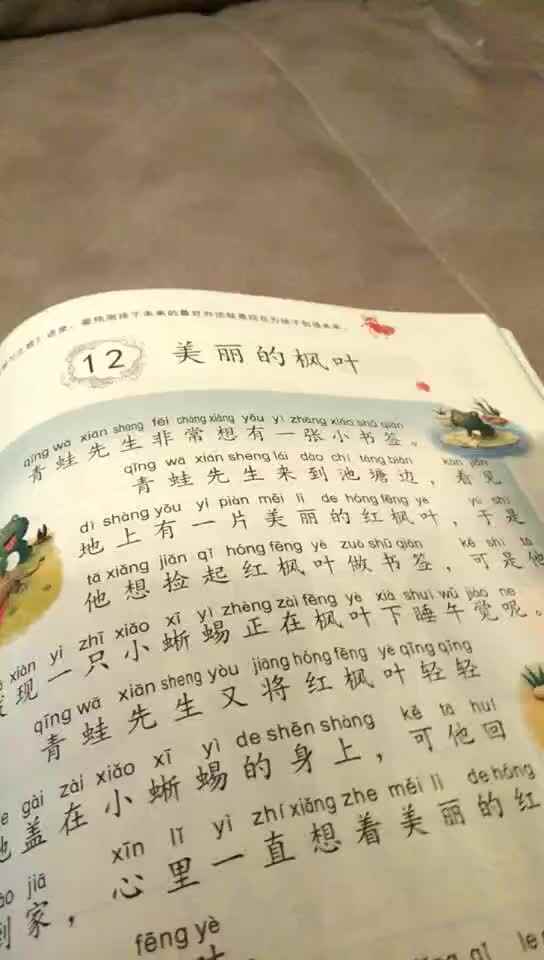 最预测孩子未来的最好办法就是现在为孩子创造未来。
12 美丽的枫叶
qīng wā xiān sheng fēi cháng xiǎng yǒu yì zhāng xiǎo shū qiān
青蛙先生非常想有一张小书签。
qīng wā xiān sheng lái dào chí táng biān kàn jiàn
青蛙先生来到池塘边，看见
dì shàng yǒu yí piàn měi lì de hóng fēng yè yú shì
地上有一片美丽的红枫叶，于是
tā xiǎng jiǎn qǐ hóng fēng yè zuò shū qiān kě shì tā
他想捡起红枫叶做书签，可是他
xiàn yì zhī xiǎo xī yì zhèng zài fēng yè xià shuì wǔ jiào ne
现一只小蜥蜴正在枫叶下睡午觉呢。
qīng wā xiān sheng yòu jiāng hóng fēng yè qīng qīng
青蛙先生又将红枫叶轻轻
gài zài xiǎo xī yì de shēn shàng kě tā huí
地盖在小蜥蜴的身上，可他回
jiā xīn lǐ yì zhí xiǎng zhe měi lì de hóng
到家，心里一直想着美丽的红
fēng yè